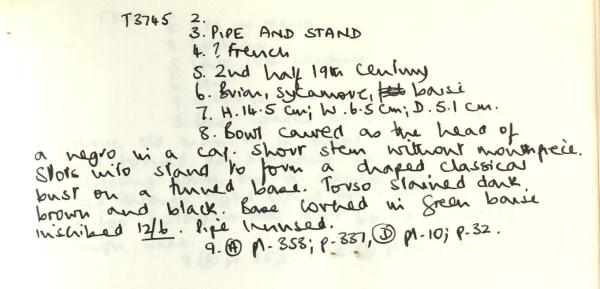 T3745 2.
3. PIPE AND STAND
4. ? French
5. 2nd half 19th Century
6. Briar, sycamore, baise
7. H. 14.5 cm; W. 6.5 cm; D. 5.1 cm.
8. Bowl carved as the head of
a negro in a cap. Short stem without mouthpiece.
Slots into stand to form a draped classical
bust on a turned base. Torso stained dark
brown and black. Base covered in green baise
inscribed 12/6. Pipe unused.
9. Ⓐ pl. 353; p. 337, Ⓓ pl. 10; p. 32.